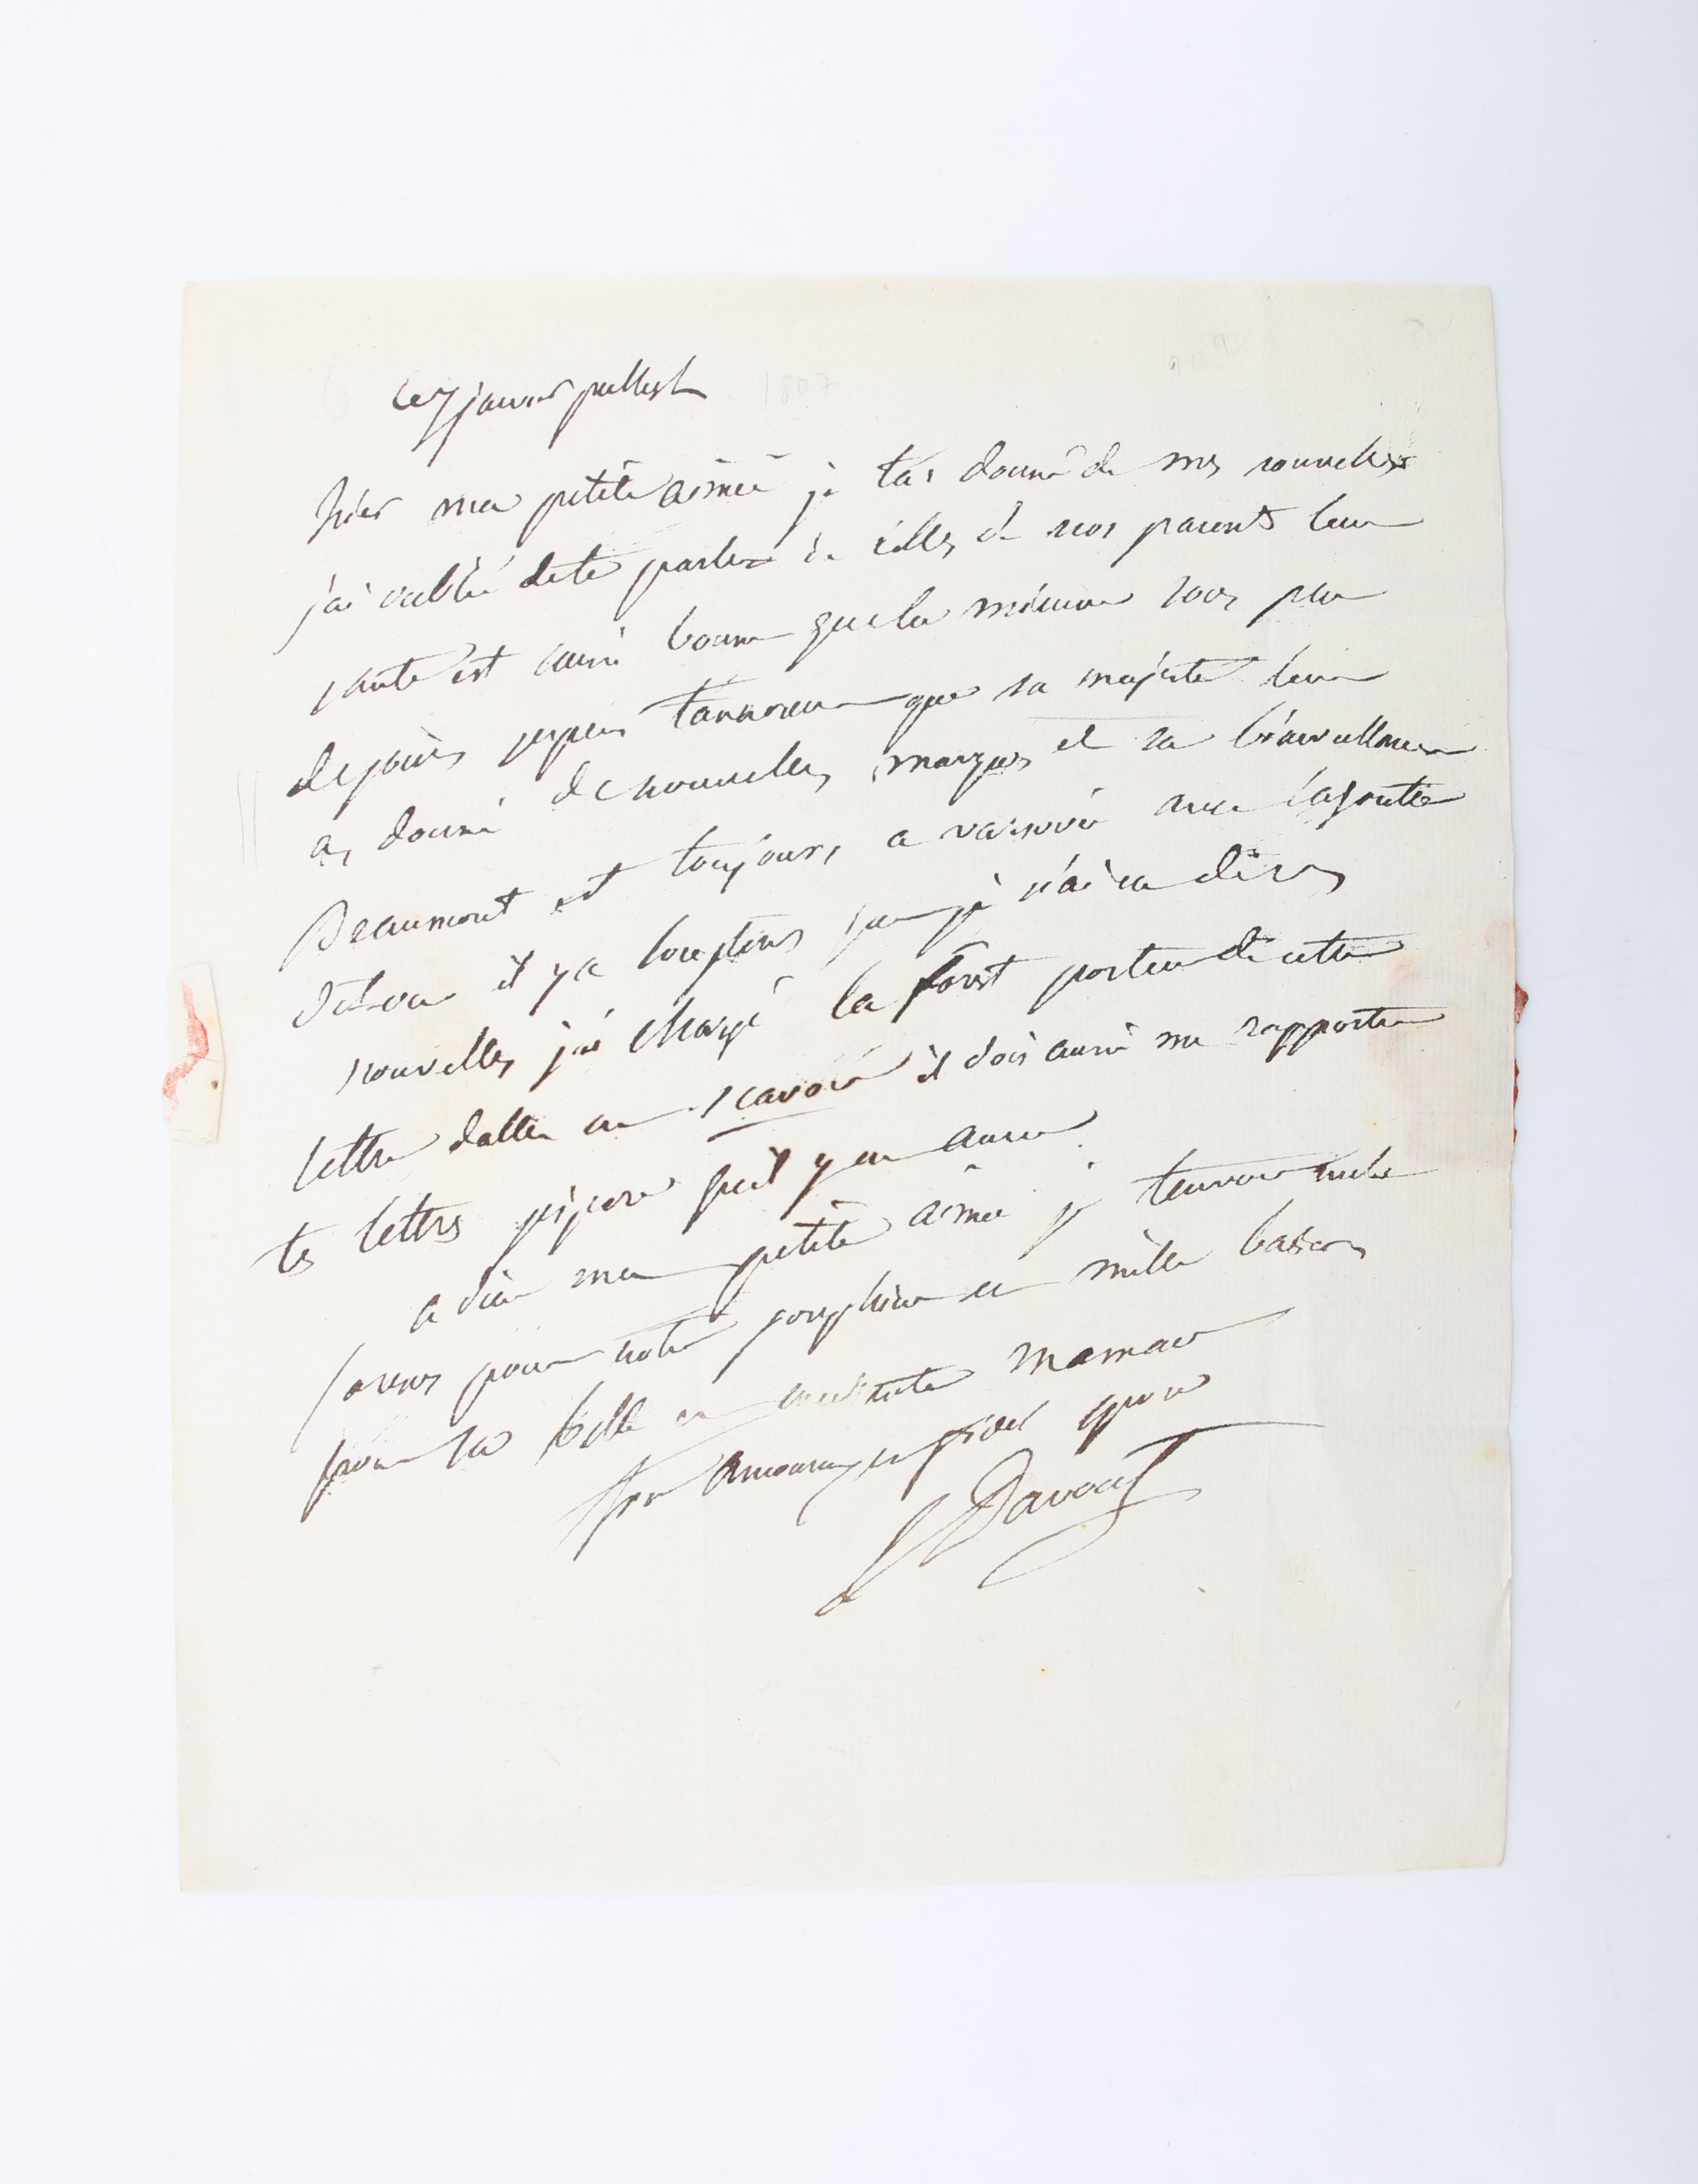 Ce 7 janvier pultusk 1807
hier ma petite aimée je tai donné de mes nouvelles
j'ai oublié de te parler de celles de nos parents leur
santé est aussi bonne que la mienne sous peu
de jours jespere tannoncer que sa majesté leur
a donné de nouvelles marques de sa bienveillance
Beaumont est toujours a varsovie avec
il y a longtems que je n'ai eu de ses
nouvelles j'ai chargé la forest porteur de cette
lettre daller en scavoir il dois aussi me rapporter
tes lettres jespere quil y en aura
adieu ma petite aimée je tenvoie mille
pour notre josephine et mille baisers
pour sa belle et excellente maman
ton amoureux et fidel epoux
L Davout